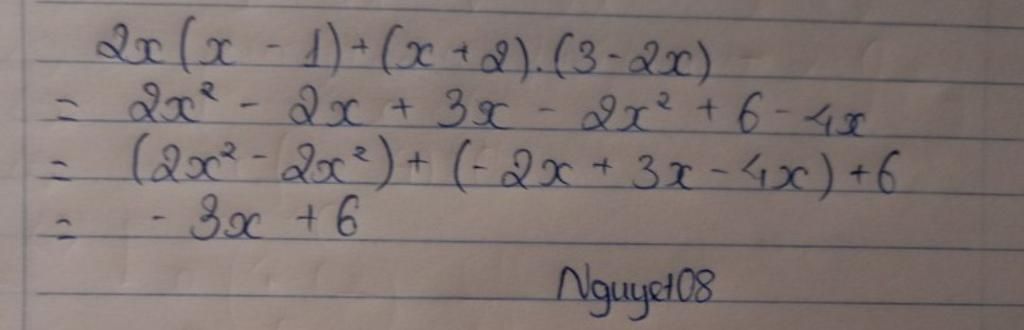 2x(x - 1) + (x + 2).(3 - 2x)
= 2x² - 2x + 3x - 2x² + 6 - 4x
= (2x² - 2x²) + (-2x + 3x - 4x) + 6
= - 3x + 6
Nguyet08